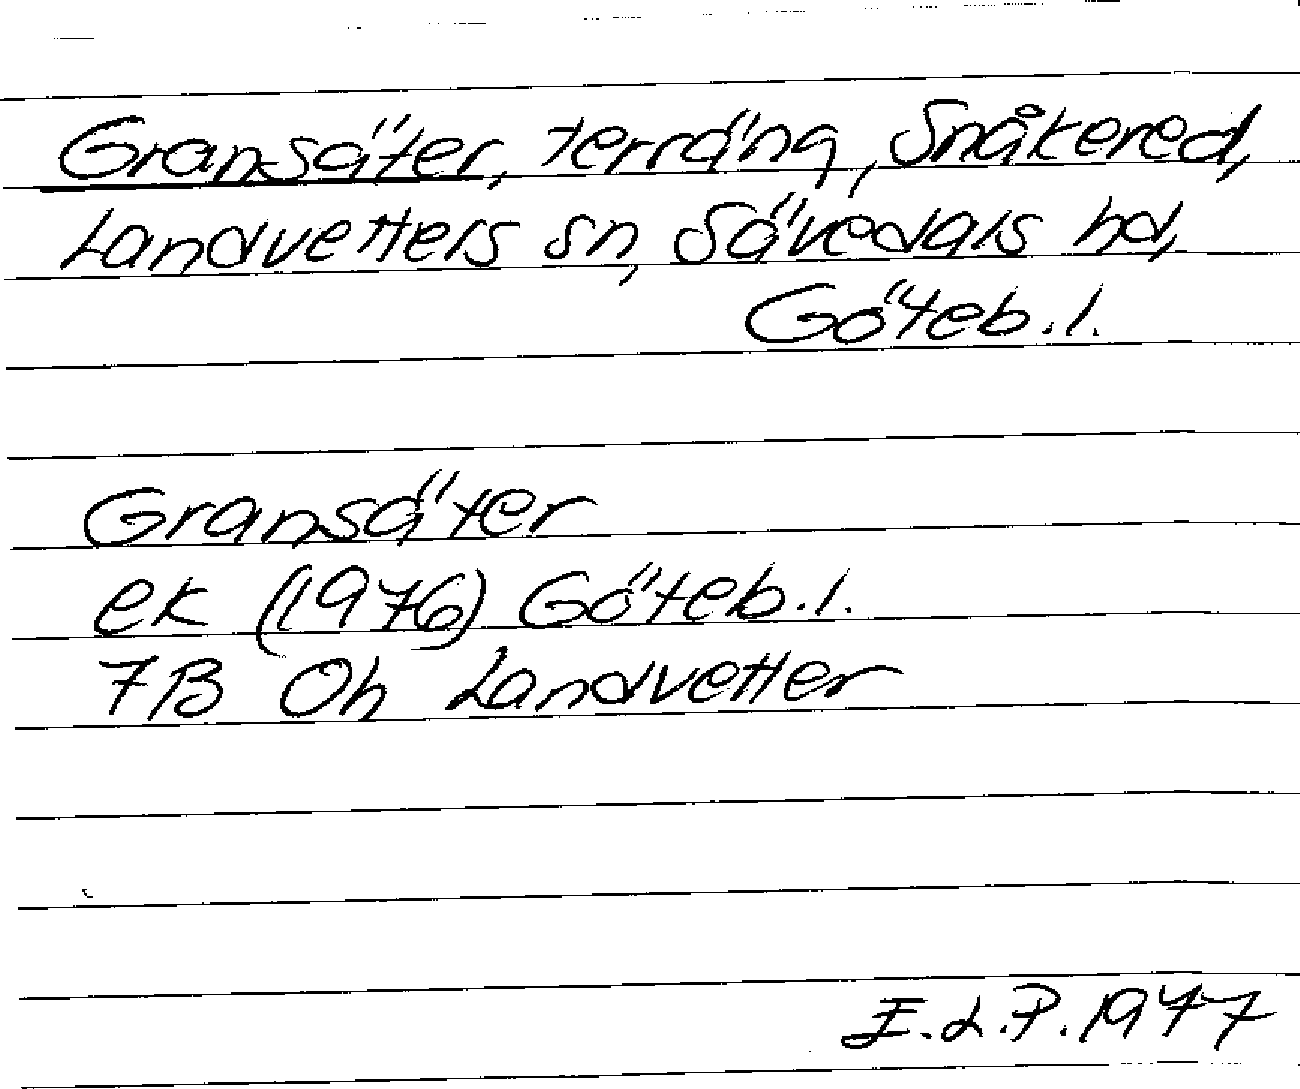 Gransäter, terräng, Snåkered,
Landvetters sn, Sävedals hd,
Göteb. l.
Gransäter
ek (1976) Göteb. l.
7B Oh Landvetter
E.L.P. 1977